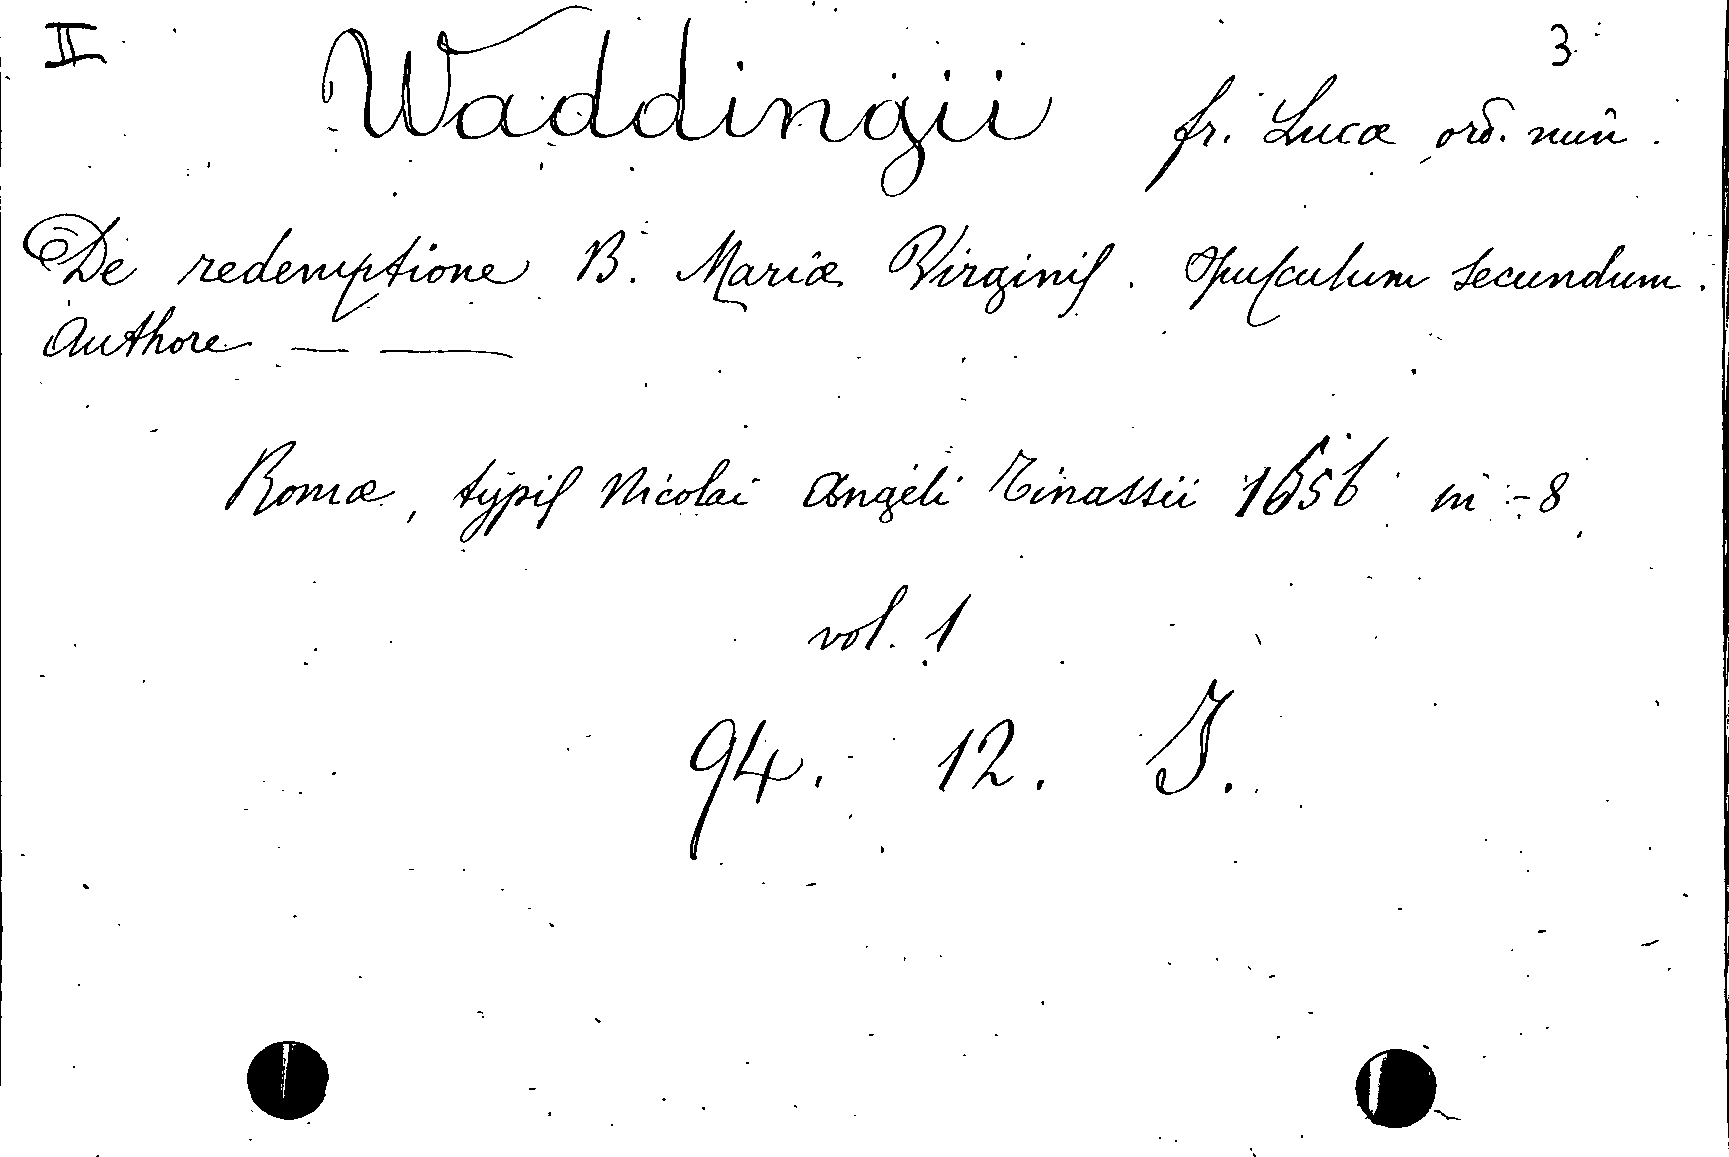 II 3
Waddingii fr. Lucæ ord. min.
De redemptione B. Mariæ Virginis. Opusculum secundum.
Authore — —
Romæ, typis Nicolai Angeli Tinassii 1656 in-8
vol. 1
94. 12. J.